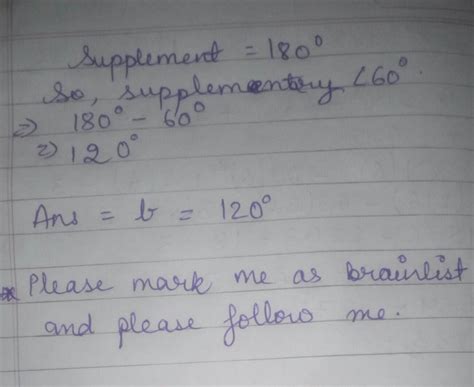 Supplement = 180°
So, supplementary ∠60°.
⇒ 180° - 60°
⇒ 120°
Ans = b = 120°
Please mark me as brainlist
and please follow me.